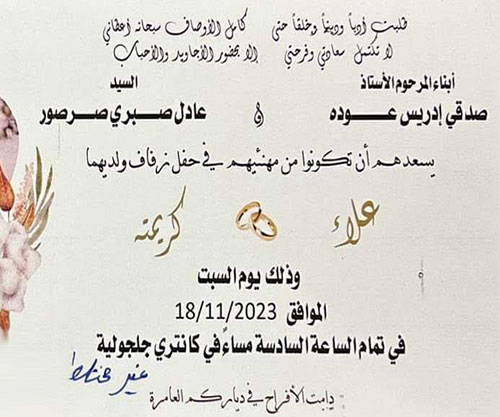 طلبت أدباً وديناً وخلقاً حتى كامل الأوصاف سبحانه أعطاني
لا تكتمل سعادتي وفرحتي إلا بحضور الأجاويد والأحباب
أبناء المرحوم الأستاذ السيد
صدقي إدريس عوده و عادل صبري صرصور
يسعدهم أن تكونوا من مهنئيهم في حفل زفاف ولديهما
علاء كريمته
وذلك يوم السبت
الموافق 18/11/2023
في تمام الساعة السادسة مساءً في كانتري جلجولية
غير مختلط
دامت الأفراح في دياركم العامرة